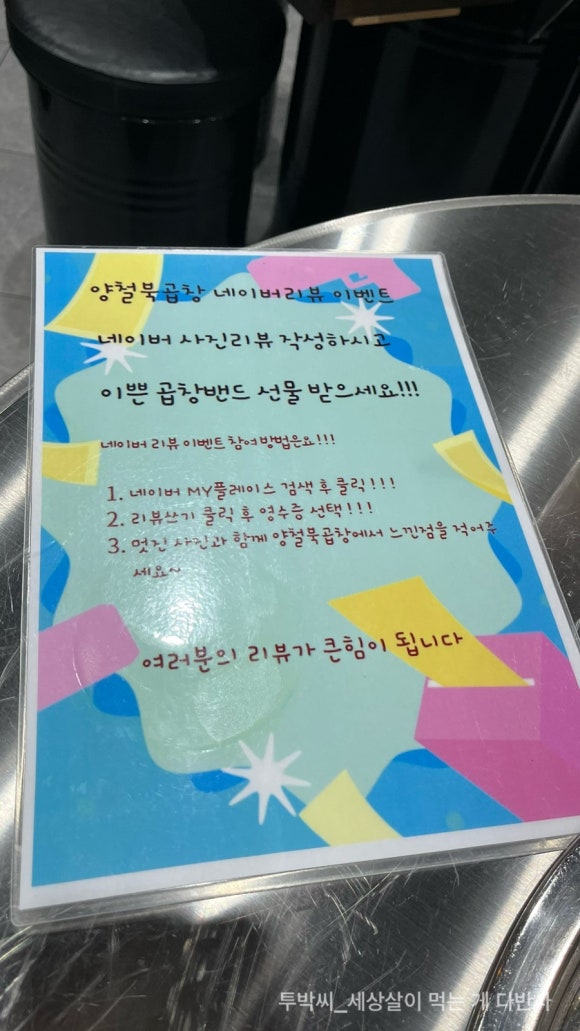 양철북곱창 네이버리뷰 이벤트
네이버 사진리뷰 작성하시고
이쁜 곱창밴드 선물 받으세요!!!
네이버 리뷰 이벤트 참여 방법은요!!!
1. 네이버 MY플레이스 검색 후 클릭!!!
2. 리뷰쓰기 클릭 후 영수증 선택!!!
3. 멋진 사진과 함께 양철북곱창에서 느낀점을 적어주
세요~
여러분의 리뷰가 큰힘이 됩니다
투박씨_세상살이 먹는 게 다반사